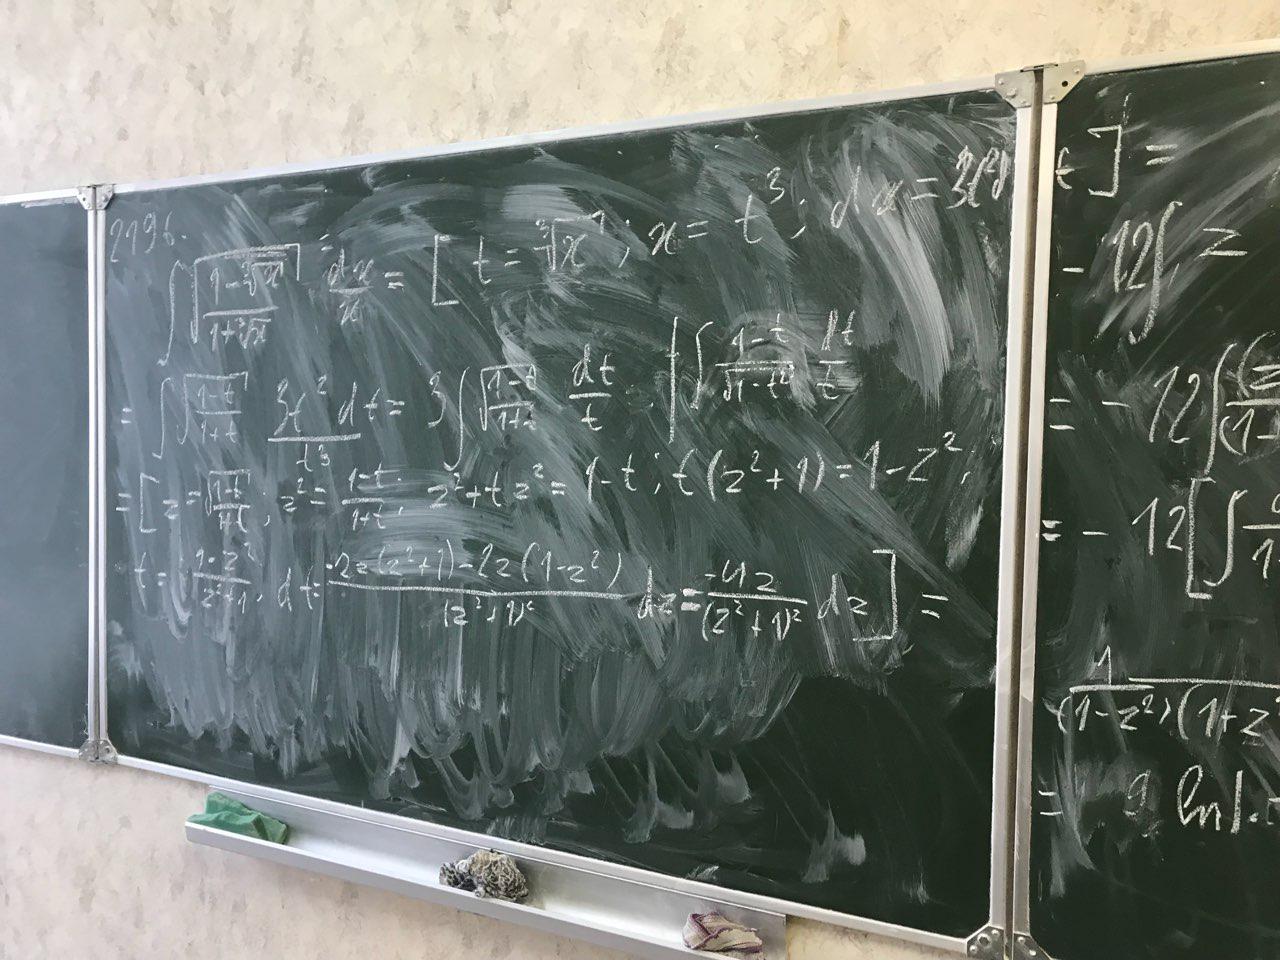 2196.
∫√((1-∛x)/(1+∛x)) dx/x = [ t = ∛x ; x = t³ ; dx = 3t²d
= ∫√((1-t)/(1+t)) 3t²dt/t³ = 3∫√((1-t)/(1+t)) dt/t . | ∫ (1-t)/√(1-t²) dt/t
= [ z = √((1-t)/(1+t)) ; z² = (1-t)/(1+t) ; z²+tz² = 1-t ; t(z²+1) = 1-z² ;
t = (1-z²)/(z²+1) ; dt = (-2z(z²+1)-2z(1-z²))/(z²+1)² dz = -4z/(z²+1)² dz ] =
t ] =
-12∫ z
= -12∫
= -12[∫
1/((1-z²)(1+z²
= ln|